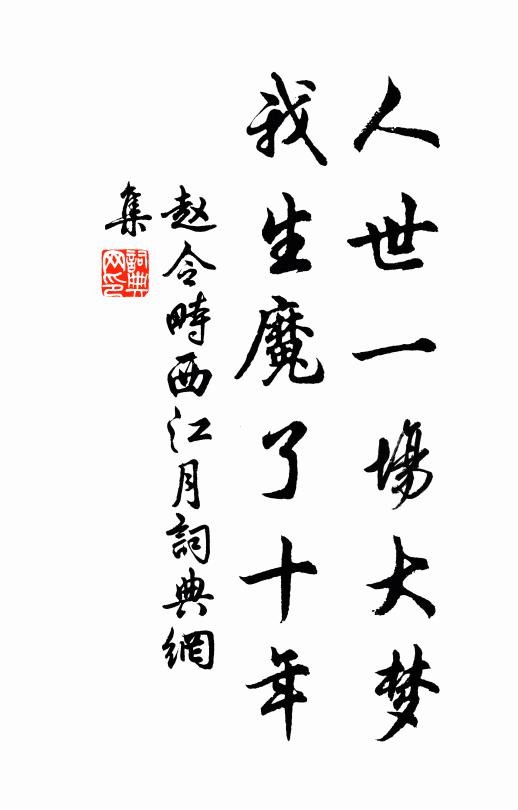 人世一場大梦
我生魔了十年
赵令畤西江月詞典網
集
詞典
网印